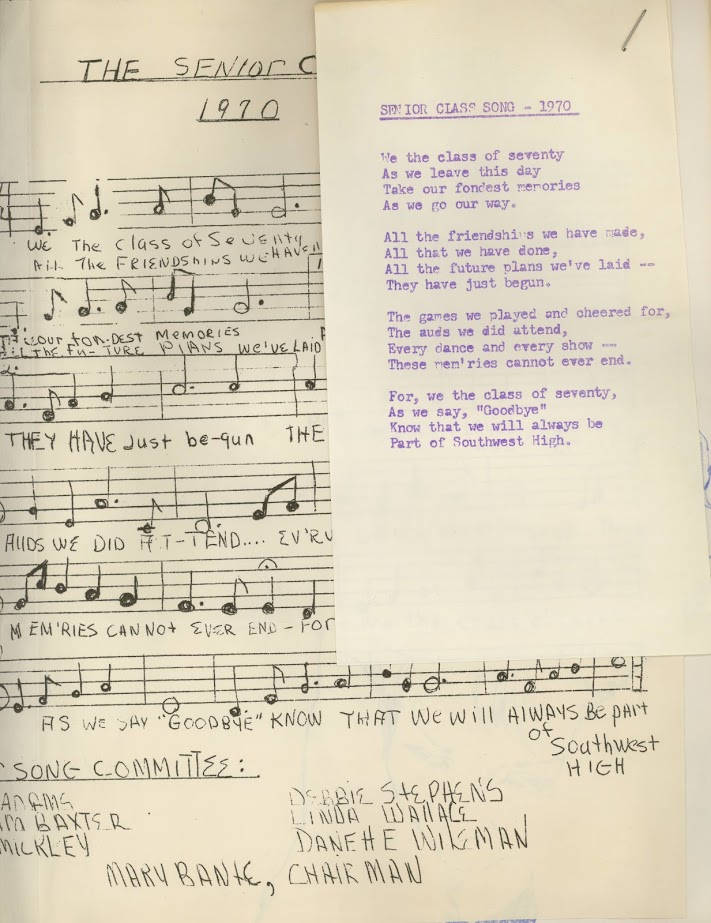 THE SENIOR C
1970
WE The Class of Seventy
All THE FRIENDSHIPS WE HAVE
our fon-DEST MEMORIES
THE FU-TURE PLANS WE'VE LAID
THEY HAVE Just be-gun THE
AUDS WE DID AT-TEND.... EV'RY
MEM'RIES CANNOT EVER END - FOR
AS WE SAY "GOODBYE" KNOW THAT WE WILL ALWAYS BE PART
OF
Southwest
HIGH
SONG COMMITTEE:
ADAMS
BAXTER
MICKLEY
DEBBIE STEPHENS
LINDA WALLACE
DANETTE WILEMAN
MARY BANTE, CHAIRMAN
SENIOR CLASS SONG - 1970
We the class of seventy
As we leave this day
Take our fondest memories
As we go our way.
All the friendships we have made,
All that we have done,
All the future plans we've laid --
They have just begun.
The games we played and cheered for,
The auds we did attend,
Every dance and every show --
These mem'ries cannot ever end.
For, we the class of seventy,
As we say, "Goodbye"
Know that we will always be
Part of Southwest High.